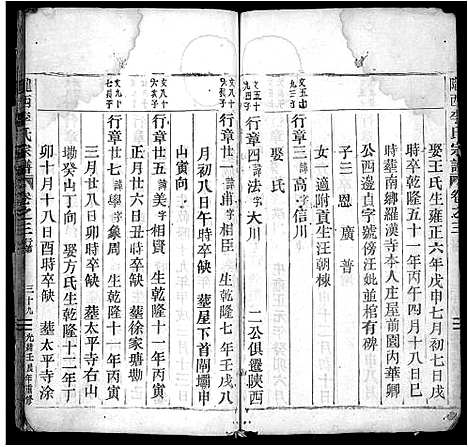 隴西李氏宗譜
卷之三
娶王氏生雍正六年戊申七月初七日戌
時卒乾隆五十一年丙午四月十八日巳
時葬南鄉羅漢寺本人庄屋前園內華卿
公西邊貞字號傍汪妣並棺有碑
子三 恩 廣 普
女一適附貢生汪朝棟
行章三 諱高 字信川
娶氏
五十
四子
行章四 諱法 字大川 二公俱遷陝西
文八十
六長子
行章廿四 諱甫 字相臣 生乾隆七年壬戌八
月初八日午時卒缺 葬屋下首閘壩申
山寅向
文八十
六次子
行章五 諱美 字相賢 生乾隆十一年丙寅
正月廿六日丑時卒缺 葬徐家塘墈
文九十
七長子
行章廿六 諱學 字象周 生乾隆十一年丙寅
三月廿八日卯時卒缺 葬太平寺右山
塝癸山丁向 娶方氏生乾隆十二年丁
卯十月十八日酉時卒缺 葬太平寺涂
隴西李氏宗譜
卷之三
三十九
光緒壬辰年重修